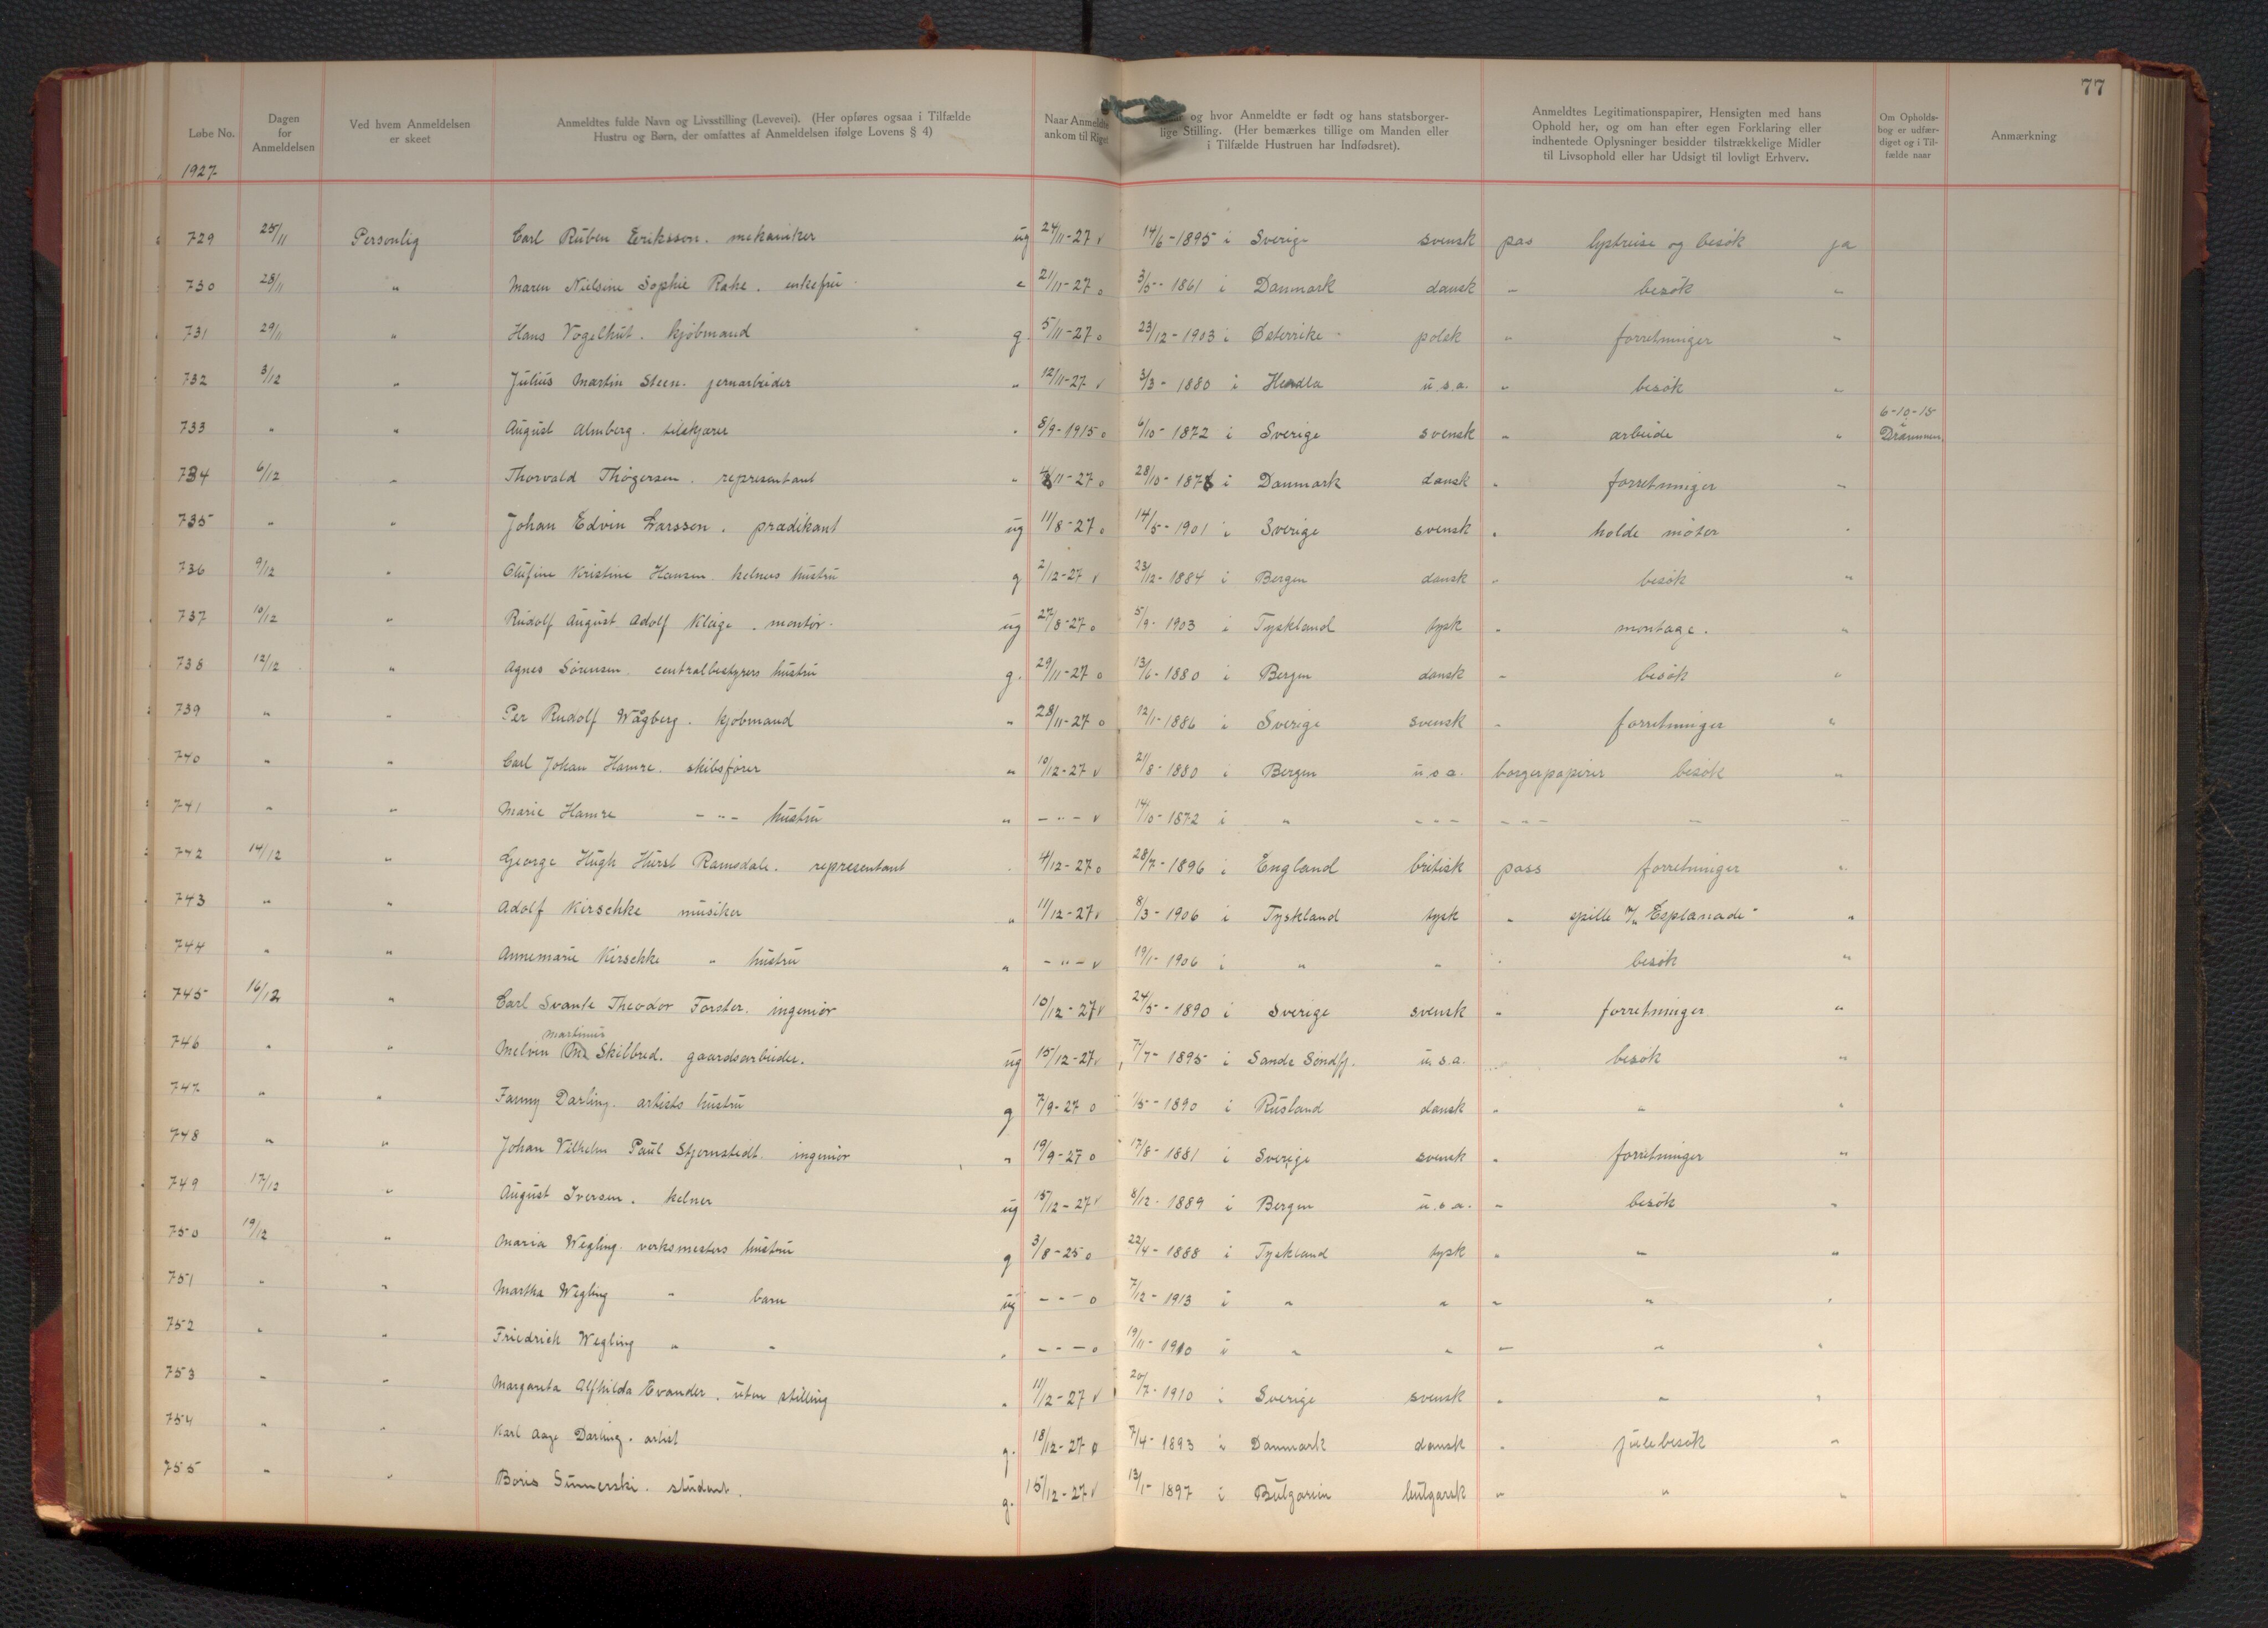 77
Løbe No.
Dagen for Anmeldelsen
Ved hvem Anmeldelsen er skeet
Anmeldtes fulde Navn og Livsstilling (Levevei). (Her opføres ogsaa i Tilfælde Hustru og Børn, der omfattes af Anmeldelsen ifølge Lovens § 4)
Naar Anmeldte ankom til Riget
og hvor Anmeldte er født og hans statsborgerlige Stilling. (Her bemærkes tillige om Manden eller i Tilfælde Hustruen har Indfødsret).
Anmeldtes Legitimationspapirer, Hensigten med hans Ophold her, og om han efter egen Forklaring eller indhentede Oplysninger besidder tilstrækkelige Midler til Livsophold eller har Udsigt til lovligt Erhverv.
Om Opholdsbog er udfærdiget og i Tilfælde naar
Anmærkning
1927
729 25/11 Personlig Carl Ruben Eriksson. mekaniker ug 24/11-27 v 14/6-1895 i Sverige svensk pas lystreise og besök ja
730 28/11 " Maren Nielsine Sophie Rake. enkefru " 21/11-27 o 3/5-1861 i Danmark dansk " besök "
731 29/11 " Hans Vogelhut. kjöbmand g. 5/11-27 o 23/12-1903 i Østerrike polsk " forretninger "
732 3/12 " Julius Martin Steen. jernarbeider " 12/11-27 v 3/3-1880 i Herdla u.s.a. " besök "
733 " " August Almberg. tilskjærer " 5/9-1915 o 6/10-1872 i Sverige svensk " arbeide " 6-10-15 i Drammen
734 6/12 " Thorvald Thögersen. representant " 11-27 o 28/10-187 i Danmark dansk " forretninger "
735 " " Johan Edvin Larsson. prædikant ug 11/8-27 o 14/5-1901 i Sverige svensk " holde möter "
736 9/12 " Olufine Kristine Hansen. kelners hustru g 2/12-27 v 23/12-1884 i Bergen dansk " besök "
737 10/12 " Rudolf August Adolf Kluge. montör. ug 27/8-27 o 5/9-1903 i Tyskland tysk " montage. "
738 12/12 " Agnes Sörensen. centralbestyrers hustru g. 29/11-27 o 13/6-1880 i Bergen dansk " besök "
739 " " Per Rudolf Wågberg. kjöbmand " 28/11-27 o 12/1-1886 i Sverige svensk " forretninger "
740 " " Carl Johan Hamre. skibsförer " 10/12-27 v 21/8-1880 i Bergen u.s.a. borgerpapirer besök "
741 " " Marie Hamre - " - hustru " - " - v 14/10-1872 i " - " - - " - " "
742 14/12 " George Hugh Hurst Ramsdale. representant " 4/12-27 o 28/7-1896 i England britisk pass forretninger "
743 " " Adolf Kirschke musiker " 11/12-27 v 8/3-1906 i Tyskland tysk " spille "Esplanade" "
744 " " Annemarie Kirschke " hustru " - " - v 19/1-1906 i " " " besök "
745 16/12 " Carl Svante Theodor Forster. ingeniör 10/12-27 v 24/5-1890 i Sverige svensk " forretninger "
Martinus
746 " " Melvin Skilbred. gaardsarbeider. ug 15/12-27 v 7/7-1895 i Sande Söndfj. u.s.a. " besök "
747 " " Fanny Darling. artists hustru g 7/9-27 o 1/5-1890 i Rusland dansk " " "
748 " " Johan Vilhelm Paul Stjernstedt. ingeniör " 19/9-27 o 17/8-1881 i Sverige svensk " forretninger "
749 17/12 " August Iversen. kelner ug 15/12-27 v 8/12-1889 i Bergen u.s.a. " besök "
750 19/12 " Maria Wegling. verksmesters hustru g 3/8-25 o 22/4-1888 i Tyskland tysk " " "
751 " " Martha Wegling " barn ug - " - o 7/12-1913 i " " " " "
752 " " Friedrich Wegling " " " - " - o 19/11-1910 i " " " " "
753 " " Margareta Alfhilda Evander. uten stilling " 11/12-27 v 20/7-1910 i Sverige svensk " " "
754 " " Karl Aage Darling. artist g. 18/12-27 o 7/4-1893 i Danmark dansk " julebesök "
755 " " Boris Sunnerski. student. g. 15/12-27 v 13/1-1897 i Bulgarien bulgarsk " " "